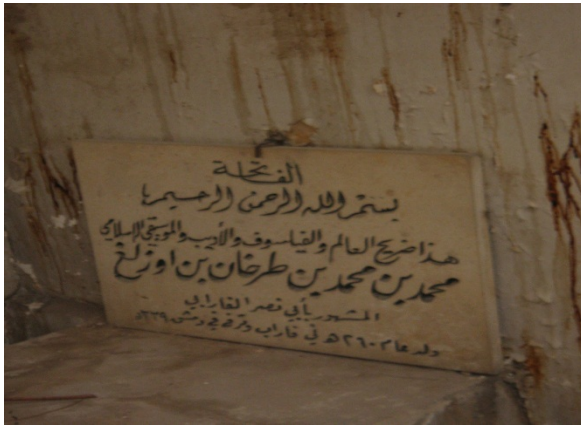 الفاتحة
بسم الله الرحمن الرحيم
هذا ضريح العالم والفيلسوف والأديب والموسيقي الإسلامي
محمد بن محمد بن طرخان بن اوزلغ
المشهور بأبي نصر الفارابي
ولد عام ٢٦٠ هـ في فاراب وتوفي في دمشق ٣٣٩ هـ